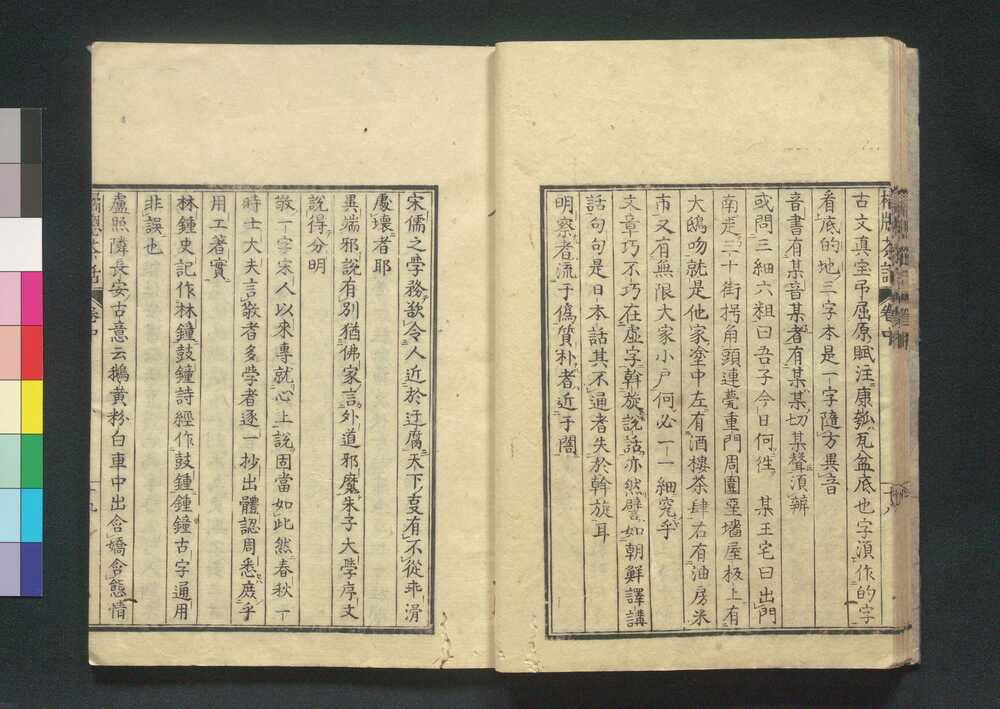 橘牕茶話 卷中
古文真宝弔屈原賦注康瓠瓦盆底也字湏作的字
看底的地三字本是一字隨方異音
音書有某音某者有某某切某聲湏辨
或問三細六粗曰吾子今日何徃 某王宅曰出門
南走三十街拐角頭連甍重門周圍堊墻屋極上有
大鴟吻就是他家塗中左有酒樓茶肆右有油房米
市又有無限大家小戸何必一一細究乎
文章巧不巧在虛字斡旋說話亦然譬如朝鮮譯講
話句句是日本話其不通者失於斡旋耳
明察者流于僞質朴者近于闇
宋儒之學務欲令人近於迂腐天下豈有不從乖滑
處壞者耶
異端邪說有別猶佛家言外道邪魔朱子大學序文
說得分明
敬一字宋人以来專就心上說固當如此然春秋一
時士大夫言敬者多學者逐一抄出體認周悉庶乎
用工著實
林鍾史記作林鐘鼓鐘詩經作鼓鍾鍾鐘古字通用
非誤也
盧照隣長安古意云鵝黄粉白車中出含嬌含態情
橘牕茶話 卷中